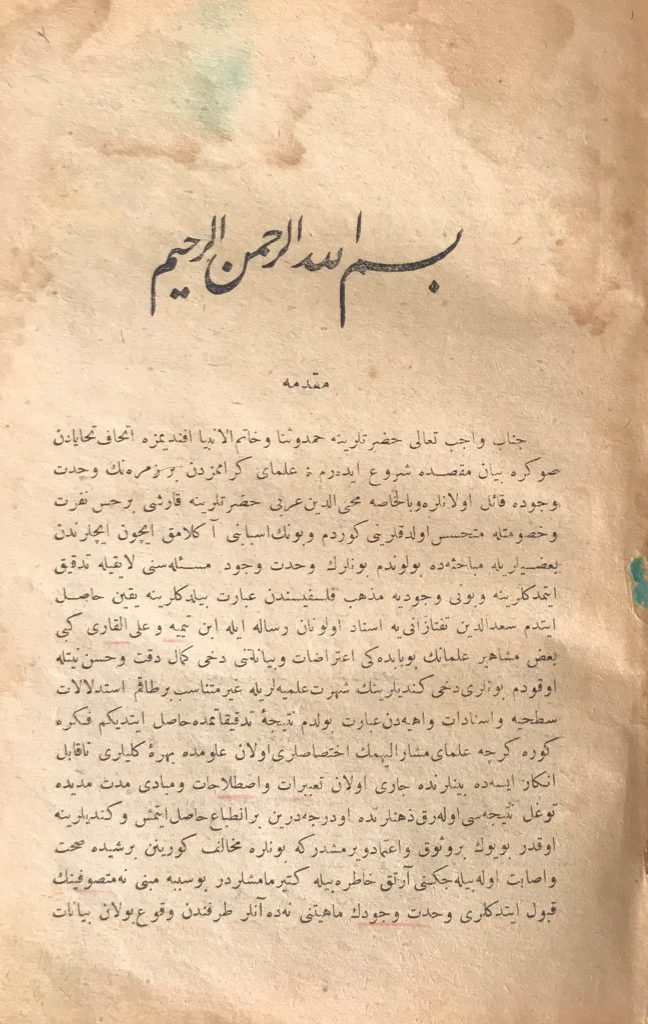 بسم الله الرحمن الرحيم
مقدمه
جناب واجب تعالى حضرتلرينه حمدوثنا وخاتم الانبيا افنديمزه اتحاف تحايادن
صوكره بيان مقصده شروع ايدەرم : علماى كراممزدن بر زمره نك وحدت
وجوده قائل اولانلره وبالخاصه محى الدين عربى حضرتلرينه قارشى برحس نفرت
وخصومتله متحسس اولدقلرينى كوردم وبونك اسبابنى آكلامق ايچون ايچلرندن
بعضيلريله مباحثه ده بولوندم بونلرك وحدت وجود مسئله سنى لايقيله تدقيق
ايتمدكلرينه وبونى وجوديه مذهب فلسفيسندن عبارت بيلدكلرينه يقين حاصل
ايتدم سعدالدين تفتازانى يه اسناد اولونان رساله ايله ابن تيميه و على القارى كبى
بعض مشاهير علمانك بوبابده كى اعتراضات وبياناتنى دخى كمال دقت وحسن نيتله
اوقودم بونلرى دخى كنديلرينك شهرت علميه لريله غيرمتناسب برطاقم استدلالات
سطحيه واسنادات واهيه دن عبارت بولدم نتيجۀ تدقيقاتمده حاصل ايتديكم فكره
كوره كرچه علماى مشاراليهمك اختصاصلرى اولان علومده بهرۀ كليلرى ناقابل
انكار ايسه ده بينلرنده جارى اولان تعبيرات واصطلاحات ومبادى مدت مديده
توغل نتيجه سى اوله رق ذهنلرنده اودرجه درين برانطباع حاصل ايتمش وكنديلرينه
اوقدر بويوك بروثوق واعتمادويرمشدركه بونلره مخالف كورينن برشيده صحت
واصابت اوله بيله جكنى آرتق خاطره بيله كتيرمامشلردر بوسببه مبنى نه متصوفينك
قبول ايتدكلرى وحدت وجودك ماهيتنى نه ده آنلر طرفندن وقوع بولان بيانات